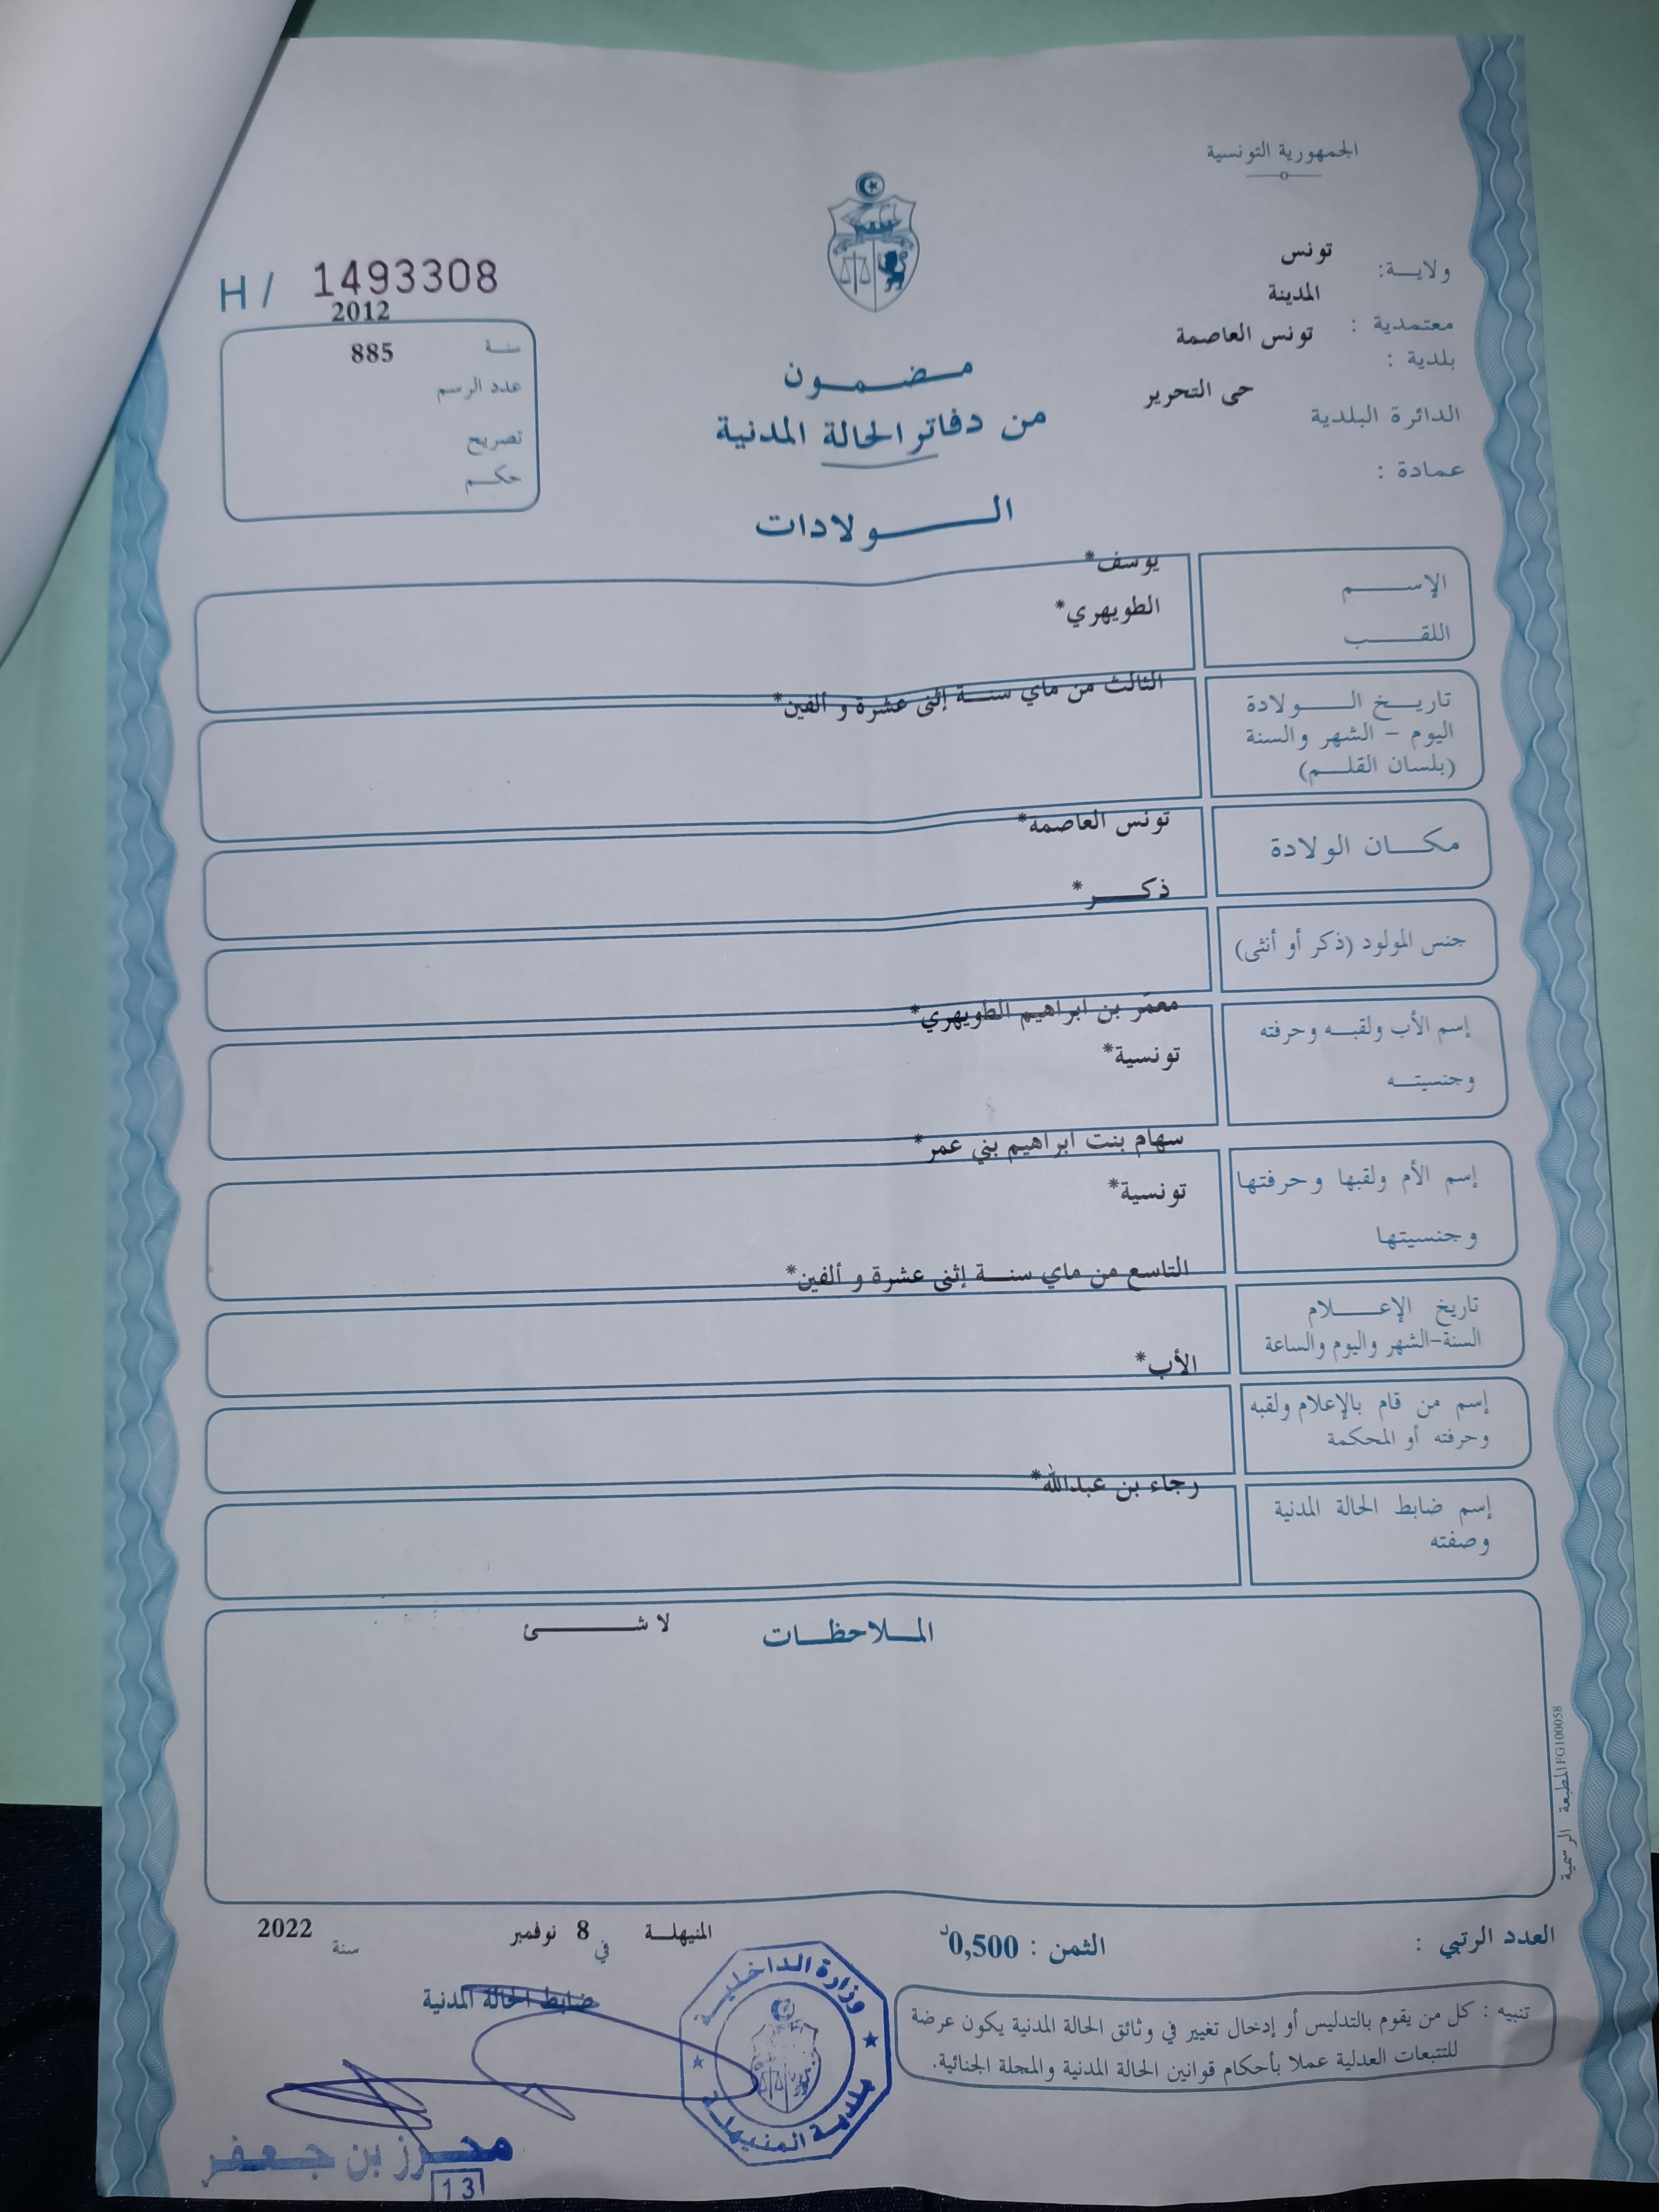 الجمهورية التونسية
ولايـــة: تونس
المدينة
معتمدية :
تونس العاصمة
بلدية :
الدائرة البلدية حى التحرير
عمادة :
H / 1493308
2012
سنــة 885
عدد الرسم
تصريح
حكــم
مـــضـــمـــون
من دفاتر الحالة المدنية
الـــــولادات
يوسف*
الإســـــم
الطويهري*
اللقـــــب
الثالث من ماي سنـــة إثنى عشرة و ألفين*
تاريـــخ الـــــولادة
اليوم - الشهر والسنة
(بلسان القلـــم)
تونس العاصمة*
مكـــان الولادة
ذكـــــر*
جنس المولود (ذكر أو أنثى)
معمّر بن ابراهيم الطويهري*
إسم الأب ولقبـــه وحرفته
تونسية*
وجنسيتـــه
سهام بنت ابراهيم بني عمر*
إسم الأم ولقبها وحرفتها
تونسية*
وجنسيتها
التاسع من ماي سنـــة إثنى عشرة و ألفين*
تاريخ الإعـــــلام
السنة-الشهر واليوم والساعة
الأب*
إسم من قام بالإعلام ولقبه
وحرفته أو المحكمة
رجاء بن عبدالله*
إسم ضابط الحالة المدنية
وصفته
الملاحظـــات لا شـــــئ
المطبعة الرسمية FG100058
العدد الرتبي :
الثمن : 0,500د
المنيهلـــة في 8 نوفمبر سنة 2022
ضابط الحالة المدنية
تنبيه : كل من يقوم بالتدليس أو إدخال تغيير في وثائق الحالة المدنية يكون عرضة
للتتبعات العدلية عملا بأحكام قوانين الحالة المدنية والمجلة الجنائية.
وزارة الداخليـــة
بلدية المنيهلة
محـرز بن جـعـفـر
13